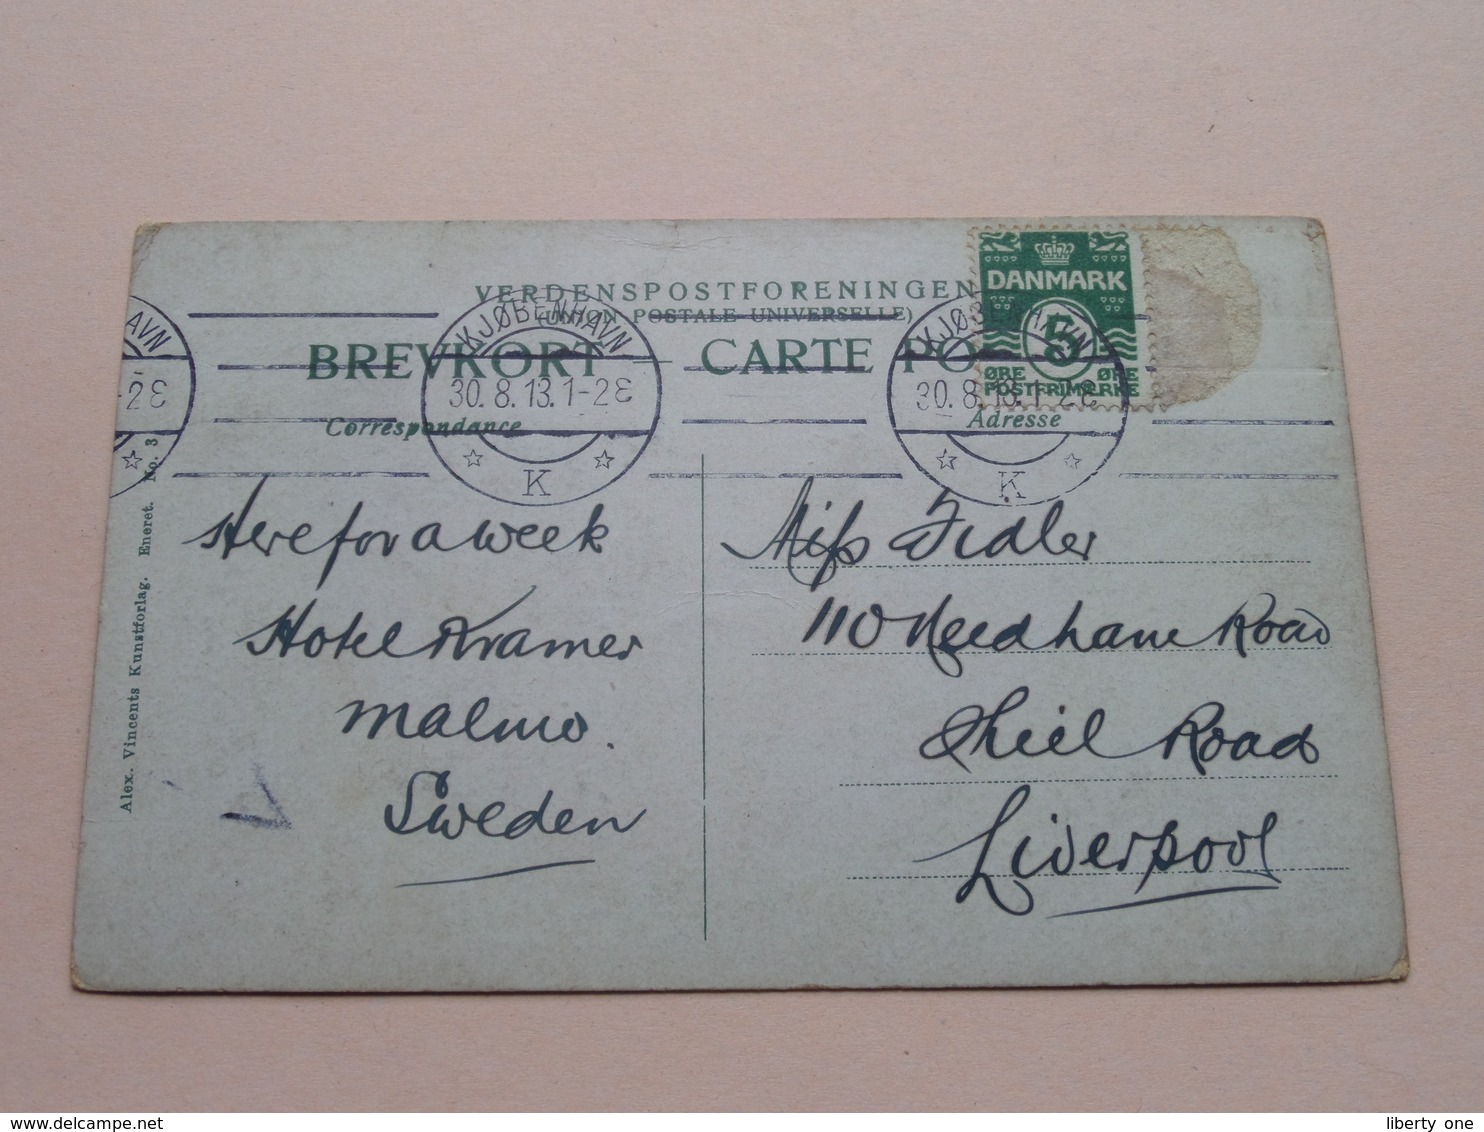 VERDENSPOSTFORENINGEN
(UNION POSTALE UNIVERSELLE)
BREVKORT — CARTE PO
Correspondance
Adresse
DANMARK
5
ØRE ØRE
POSTFRIMÆRKE
AVN
-2E
KJØBENHAVN
30.8.13.1-2E
K
KJØBENHAVN
30.8.13.1-2E
K
Here for a week
Hotel Kramer
Malmo.
Sweden
Miss Fidler
110 Needham Road
Shiel Road
Liverpool
Alex. Vincents Kunstforlag. Eneret. No. 3
liberty one